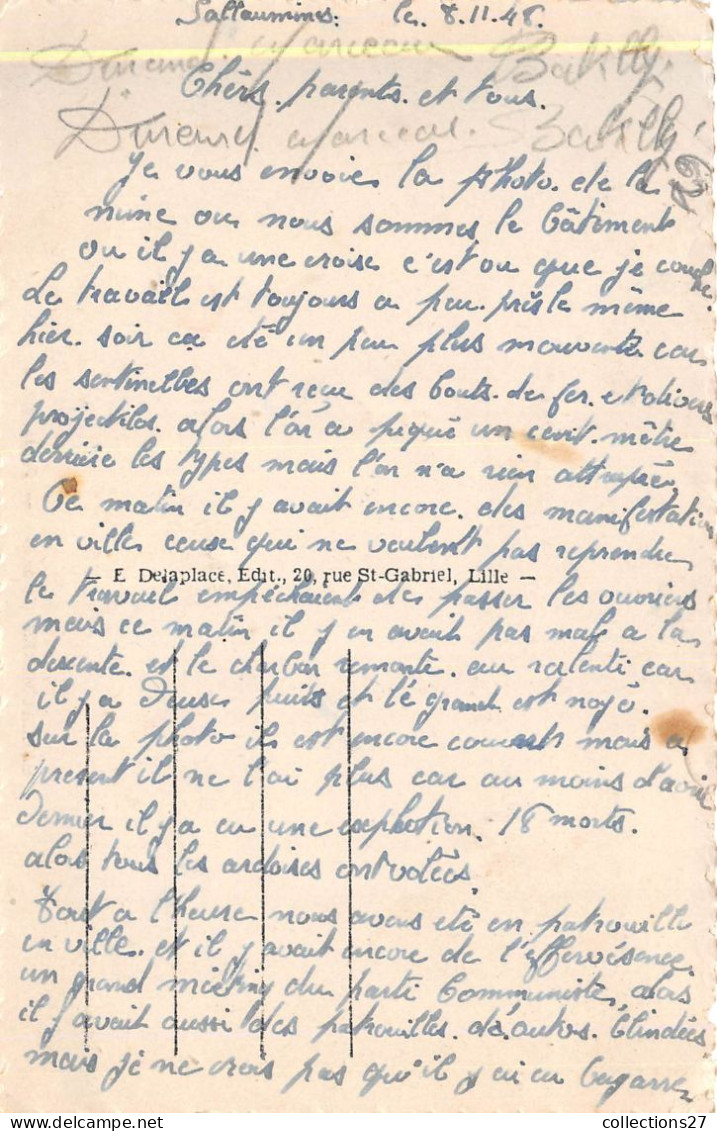 Sallaumines. le 8.11.48.
Durand. Marceau Batilly.
Chèrs. parents. et tous.
Durand. Marceau. Batilly
62
Je vous envoies la photo. de la
mine ou nous sommes le bâtiments
ou il y a une croise c'est ou que je couche.
Le travaill est toujours a peu. près le même
hier. soir ca été un peu plus mouventé car
les sentinelles ont recu des bouts. de fer. et
projectiles. alors l'on a piqué un cent. mètre
derrière les types mais l'on n'a rien attrapée,
Ce matin il y avait encore. des manifestation
en villes ceuse qui ne veulent pas reprendre
— E Delaplace, Edit., 20, rue St-Gabriel, Lille —
le travail empéchaient de passer les ouvriers
mais ce matin il y en avait pas male a la
descente. et le charbon remonte. au ralenti car
il y a deuse puits et le grand est noyé.
sur la photo il est encore couvert mais a
present il ne l'ai plus car au moins d'avril
dernier il y a eu une explotion. 18 morts.
alors tous les ardoises ont volées.
Tout a l'heure nous avons été en patrouille
en ville. et il y avait encore de l'effervésence.
un grand miéting du parti Communiste, alors
il y avait aussi des patrouilles. de. autos. Clindées
mais je ne crois pas qu'il y ai eu bagarre
collections27